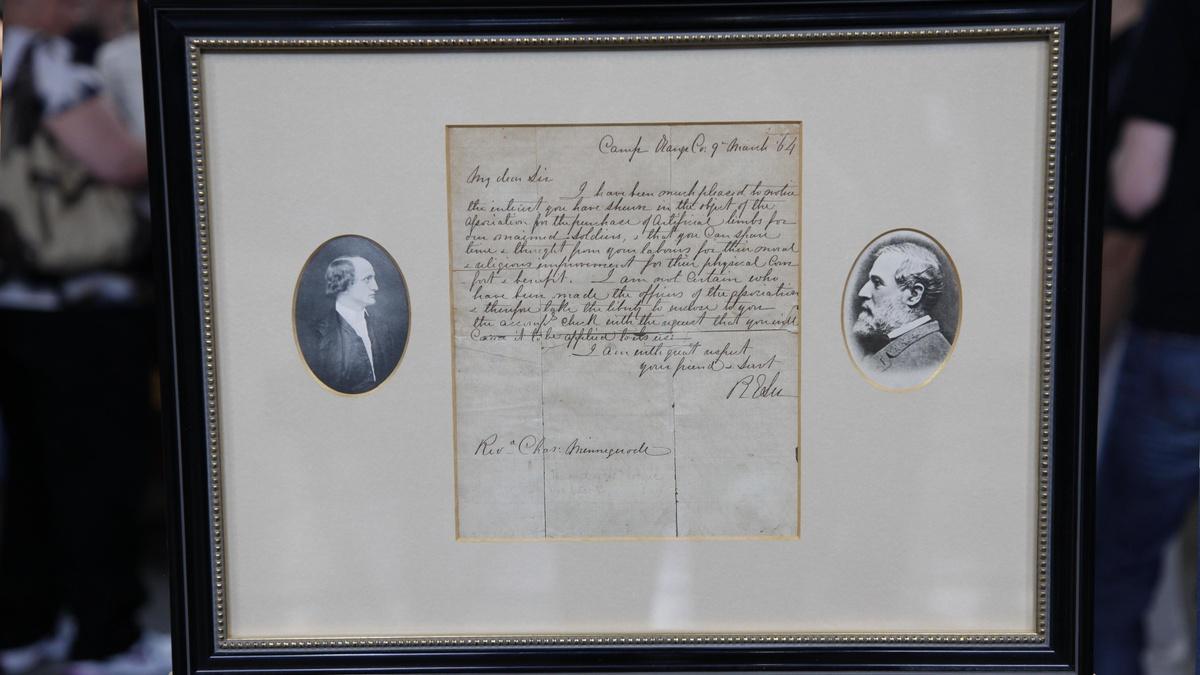 Camp Orange Co: 9th March '64
My dear Sir
I have been much pleased to notice
the interest you have shewn in the object of the
Association for the purchase of Artificial limbs for
our maimed soldiers, & that you can spare
time & thought from your labours for their moral
& religious improvement for their physical com
fort & benefit. I am not certain who
have been made the officers of the association
& therefore take the liberty to enclose to you
the accomp check with the request that you will
cause it to be applied to its use
I am with great respect
your friend & servt
R E Lee
Revd Chas: Minnegerode